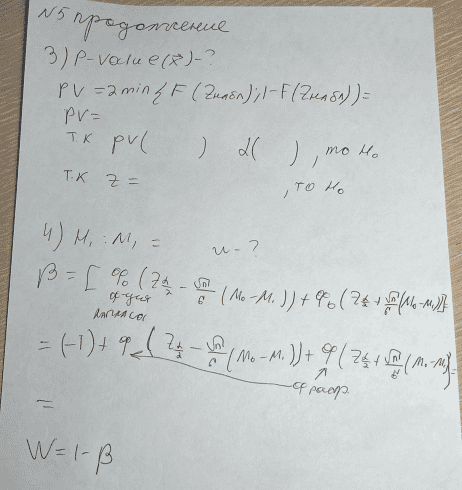 N5 продолжение
3) P-value(x⃗)-?
PV = 2min{F(Zнабл); 1-F(Zнабл)}=
PV=
т.к PV( ) α( ), то H₀
т.к Z = , то H₀
4) H₁: M₁ = w-?
β = [φ₀(Z_{α/2} - √n/б (M₀-M₁)) + φ₀(Z_{α/2} + √n/б (M₀-M₁))]
ф-ция
лапласа
= (-1) + φ(Z_{α/2} - √n/б (M₀-M₁)) + φ(Z_{α/2} + √n/б (M₀-M₁)} =
ф распр.
=
W = 1-β